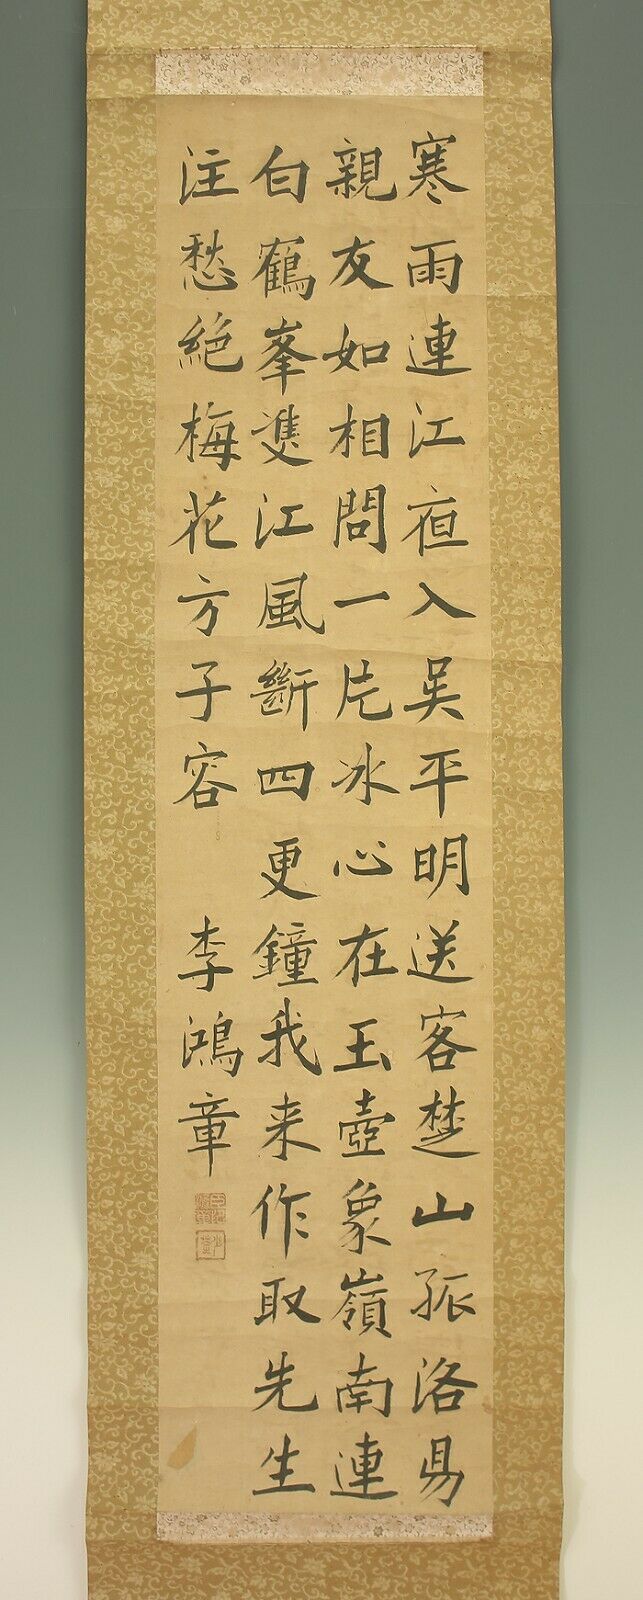 寒雨連江夜入吳平明送客楚山孤洛昜
親友如相問一片冰心在玉壺象嶺南連
白鶴峯雙江風斷四更鐘我来作取先生
注愁絕梅花方子容 李鴻章